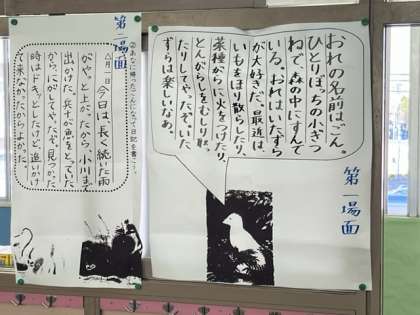 第一場面
おれの名前はごん。
ひとりぼっちの小ぎつ
ねで、森の中にすんで
いる。おれは、いたずら
が大好きだ。最近は、
いもをほり散らしたり、
菜種がらに火をつけたり、
とんがらしをむしり取っ
たりしてやったぞ。いた
ずらは楽しいなあ。
第一場面
②あなに帰ったごんになって日記を書こう。
△月一日 今日は、長く続いた雨
がやっと上がったから、小川まで
出かけた。兵十が魚をとっていた
から、にがしてやったぞ。見つかった
時はドキッとしたけど、追いかけ
て来なかったからよかった。